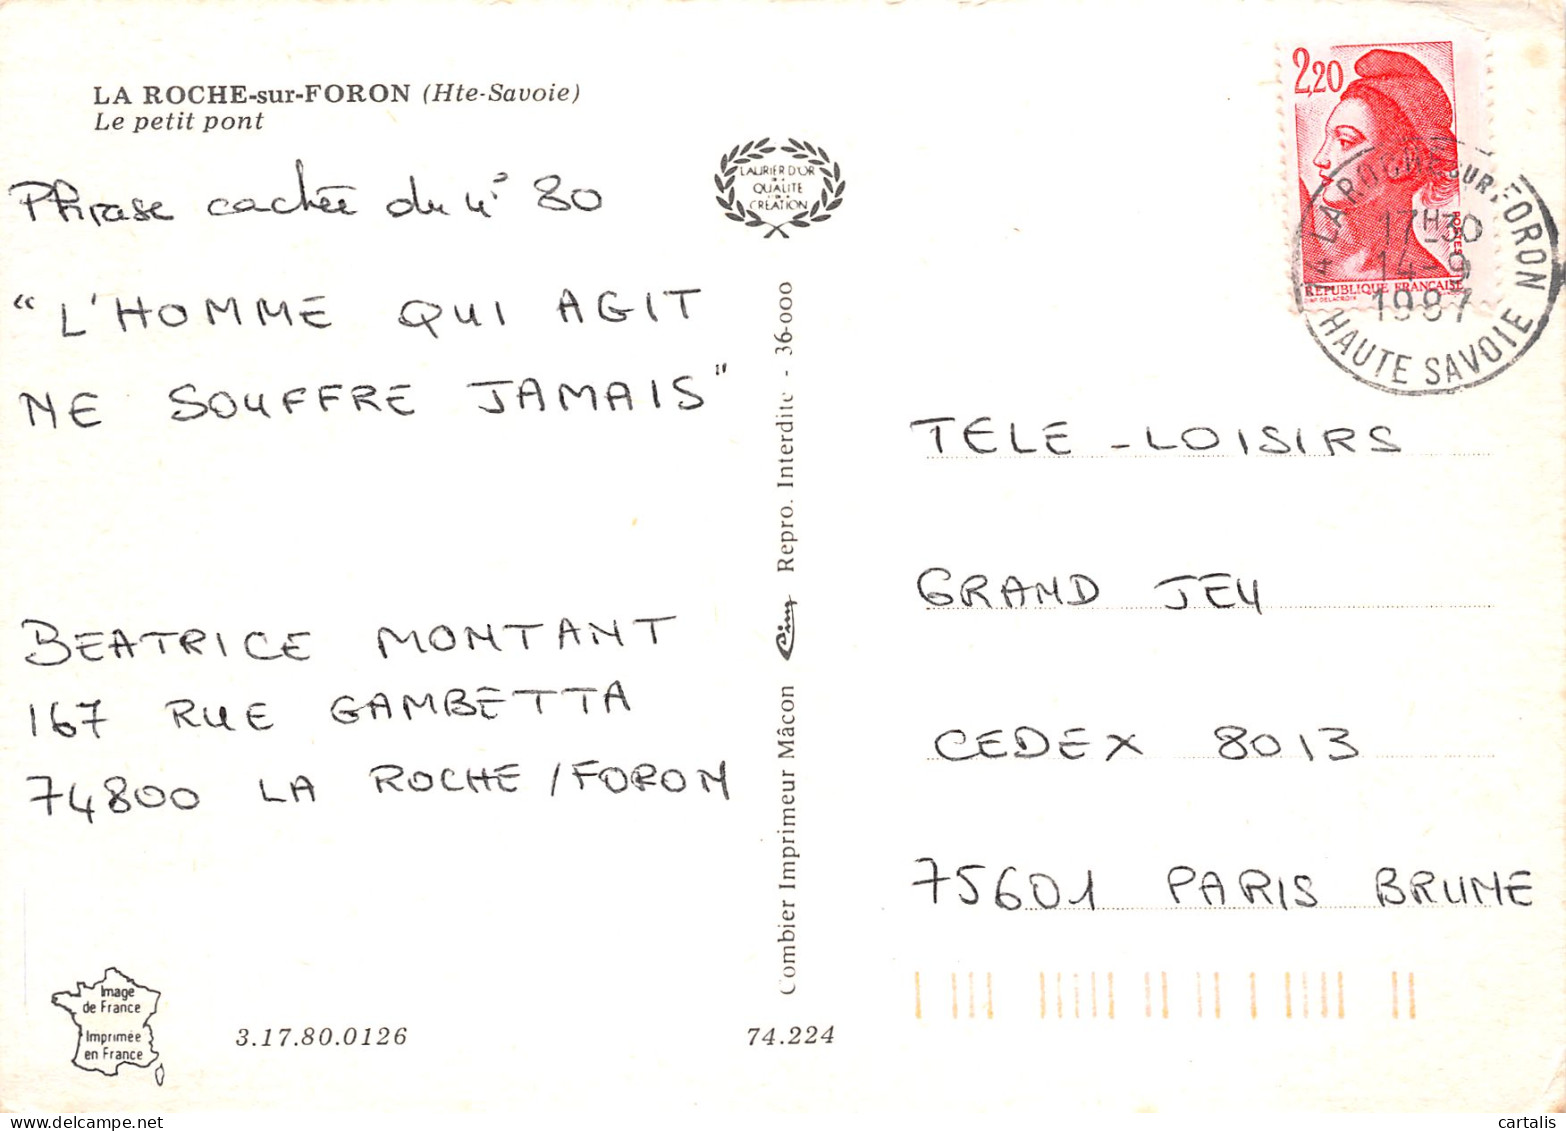 LA ROCHE-sur-FORON (Hte-Savoie)
Le petit pont
Phrase cachée du n° 80
“L'HOMME QUI AGIT
NE SOUFFRE JAMAIS”
BEATRICE MONTANT
167 RUE GAMBETTA
74800 LA ROCHE/FORON
Image
de France
Imprimée
en France
3.17.80.0126
74.224
LAURIER D'OR
QUALITE
CREATION
Combier Imprimeur Mâcon Cim Repro. Interdite - 36-000
2,20
POSTES
REPUBLIQUE FRANCAISE
74 LA ROCHE-SUR-FORON
17H30
14-9
1987
HAUTE SAVOIE
TELE-LOISIRS
GRAND JEU
CEDEX 8013
75601 PARIS BRUNE
cartalis